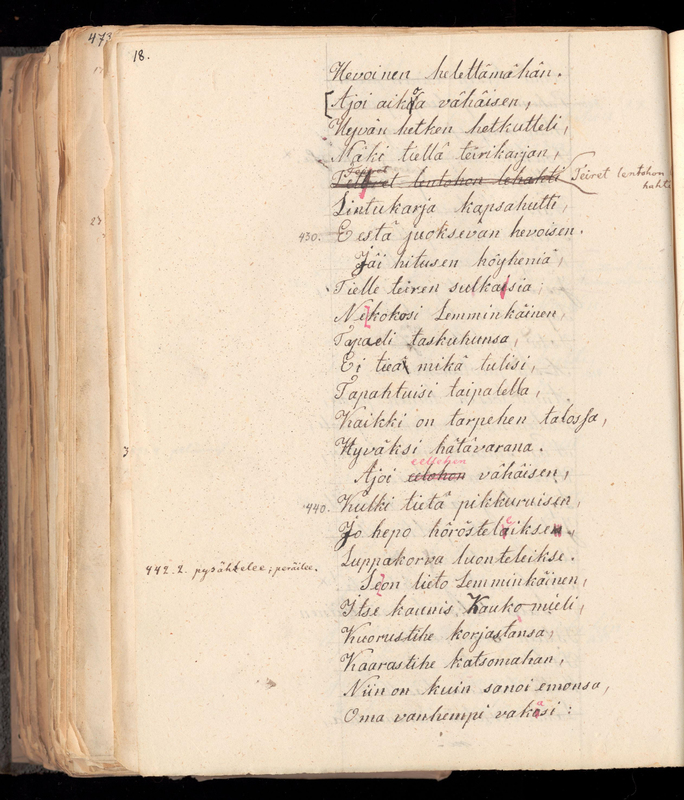 473
18.
Hevoinen helettämähän.
[Ajoi aikoa vähäisen,
Hyvän hetken hetkutteli,
Näki tiellä teirikarjan,
Teiret lentohon lehahti
Teiret lentohon
hahti
Lintukarja kapsahutti,
430. Eestä juoksevan hevoisen.
Jäi hitusen höyheniä,
Tielle teiren sulkasia;
Ne kokosi Lemminkäinen,
Tapaeli taskuhunsa,
Ei tieä mikä tulisi,
Tapahtuisi taipalella,
Kaikki on tarpehen talossa,
Hyväksi hätävarana.
eellehen
Ajoi eelohon vähäisen,
440. Kulki tietä pikkuruisen,
Jo hepo hörösteleiksen,
Luppakorva luonteleikse.
442.2. pysähtelee; peräilee.
Se on lieto Lemminkäinen,
Itse kaunis Kauko mieli,
Kuorustihe korjastansa,
Kaarastihe katsomahan,
Niin on kuin sanoi emonsa,
Oma vanhempi vakasi:
23
3